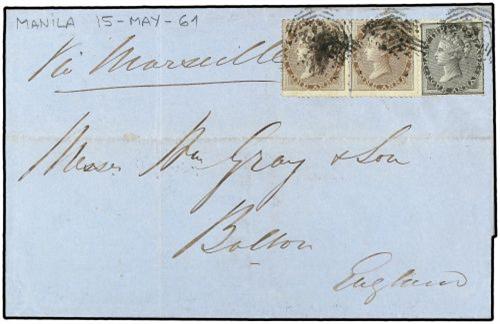 MANILA 15-MAY-61
Via Marseille
Messrs Wm Gray & Son
Bolton
England